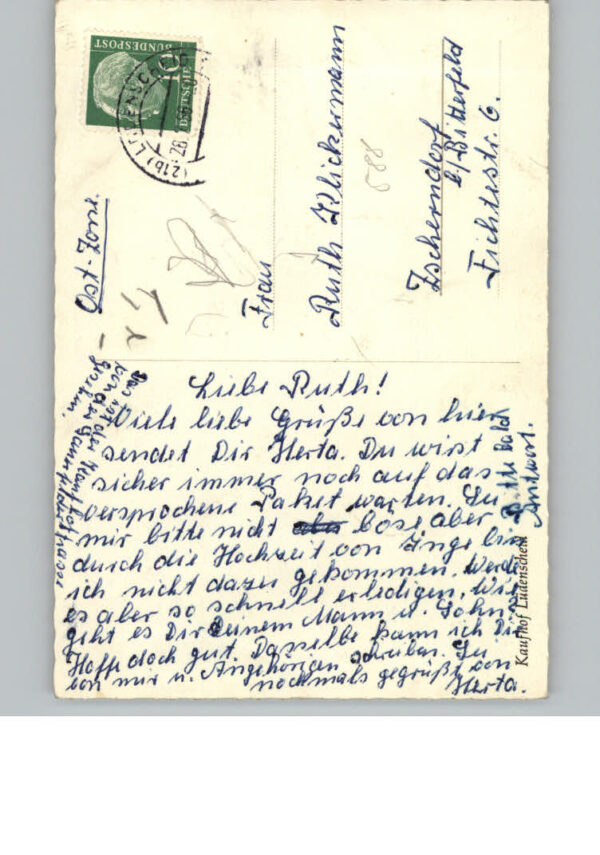 Liebe Ruth!
Viele liebe Grüße von hier
sendet Dir Herta. Du wirst
sicher immer noch auf das
versprochene Paket warten. Sei
mir bitte nicht böse aber
durch die Hochzeit von Inge bin
ich nicht dazu gekommen. Werde
es aber so schnell erledigen. Wie
geht es Dir Deinem Mann u. Sohn
Hoffe doch gut. Dasselbe kann ich Dir
von mir u. Angehörigen schreiben. Sei
nochmals gegrüßt von
Herta.
Bitte bald
Antwort.
Das ist der Kaufhof
von der
Ost-Zone.
Frau
Ruth Klickermann
Zscherndorf
b/Bitterfeld
Fichtestr. 6.
588
DEUTSCHE
BUNDESPOST
10
(21b) LÜDENSCHEID
28
Kaufhof Lüdenscheid